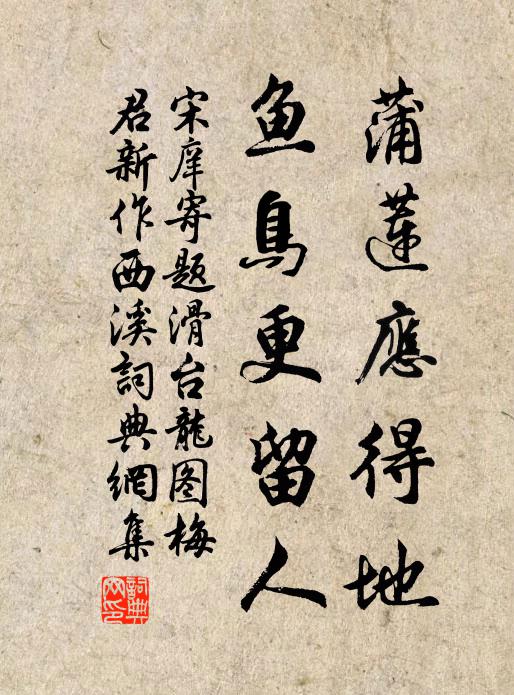 蒲莲應得地
鱼鳥更留人
宋庠寄题滑台龍图梅
君新作西溪詞典網集